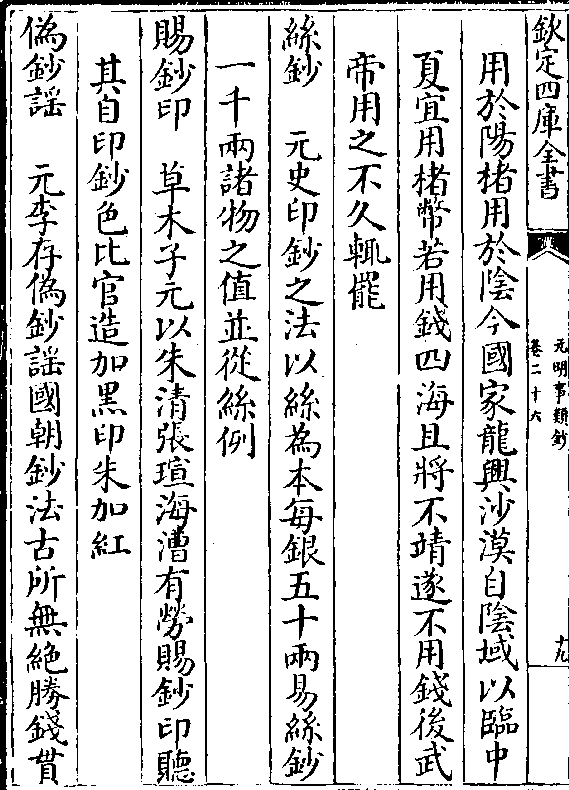 欽定四庫全書
元明事類鈔
卷二十六
十九
用於陽楮用於陰今國家龍興沙漠自陰域以臨中
夏宜用楮幣若用錢四海且將不靖遂不用錢後武
帝用之不久輒罷
絲鈔　元史印鈔之法以絲為本每銀五十兩易絲鈔
一千兩諸物之值並從絲例
賜鈔印　草木子元以朱清張瑄海漕有勞賜鈔印聽
其自印鈔色比官造加黑印朱加紅
偽鈔謡　元李存偽鈔謡國朝鈔法古所無絶勝錢貫